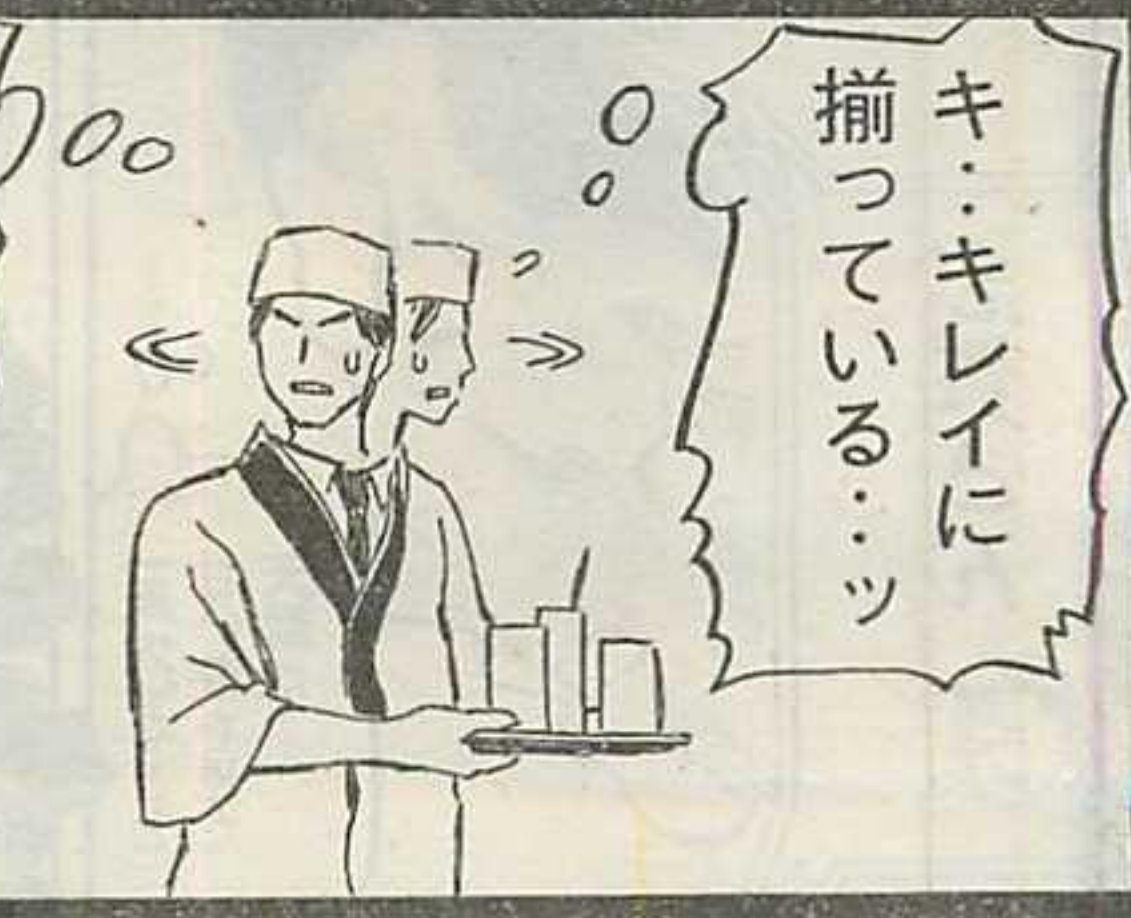 キ‥キレイに
揃っている‥ッ